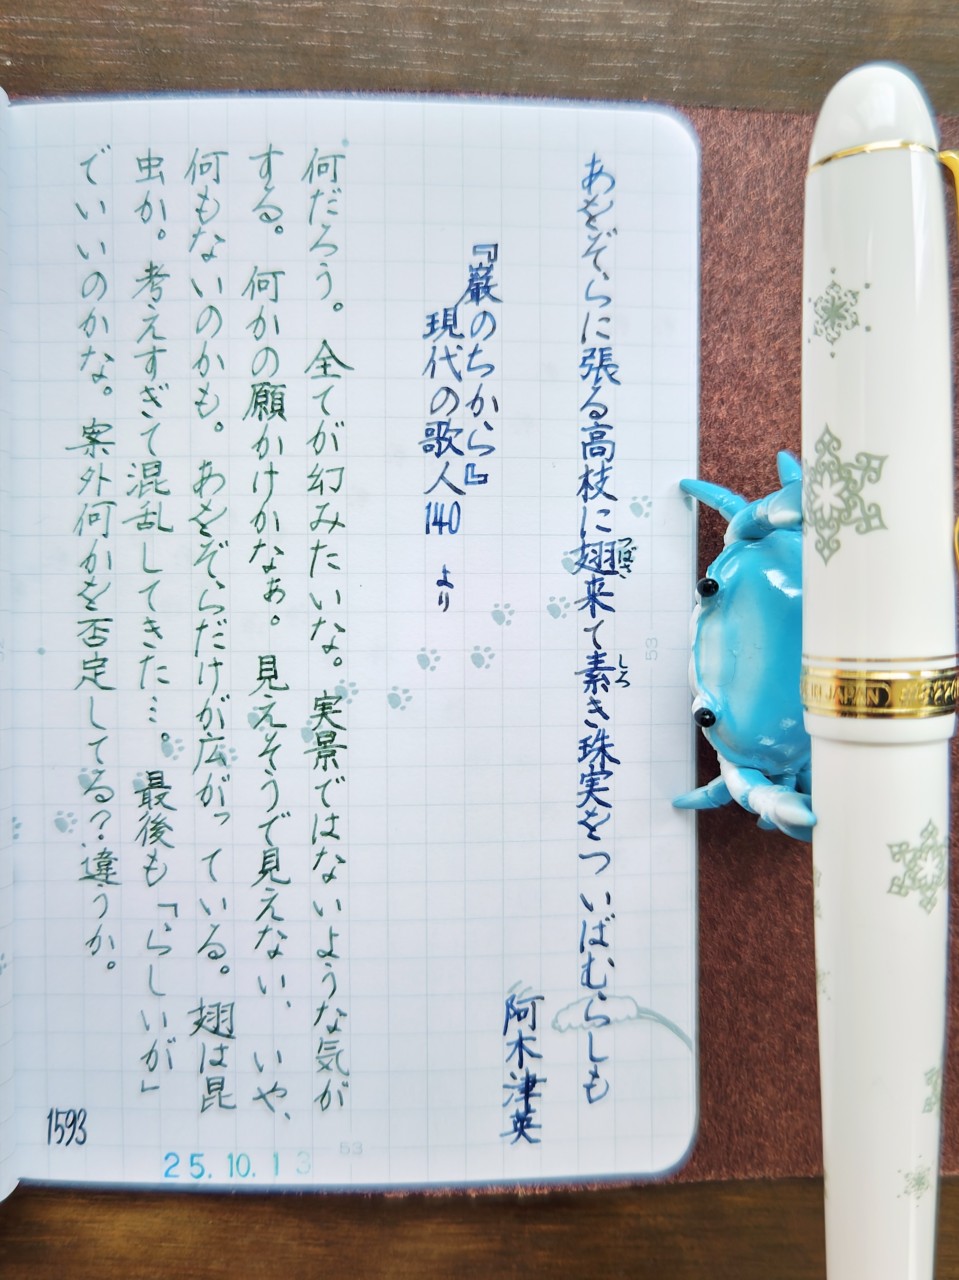 あをぞらに張る高枝に翅来て素き珠実をついばむらしも
つばさ
しろ
阿木津英
『巌のちから』
現代の歌人140 より
何だろう。全てが幻みたいな。実景ではないような気が
する。何かの願かけかなぁ。見えそうで見えない、いや、
何もないのかも。あをぞらだけが広がっている。翅は昆
虫か。考えすぎて混乱してきた…。最後も「らしいが」
でいいのかな。案外何かを否定してる？違うか。
1593
25.10.13
53
53
IN JAPAN